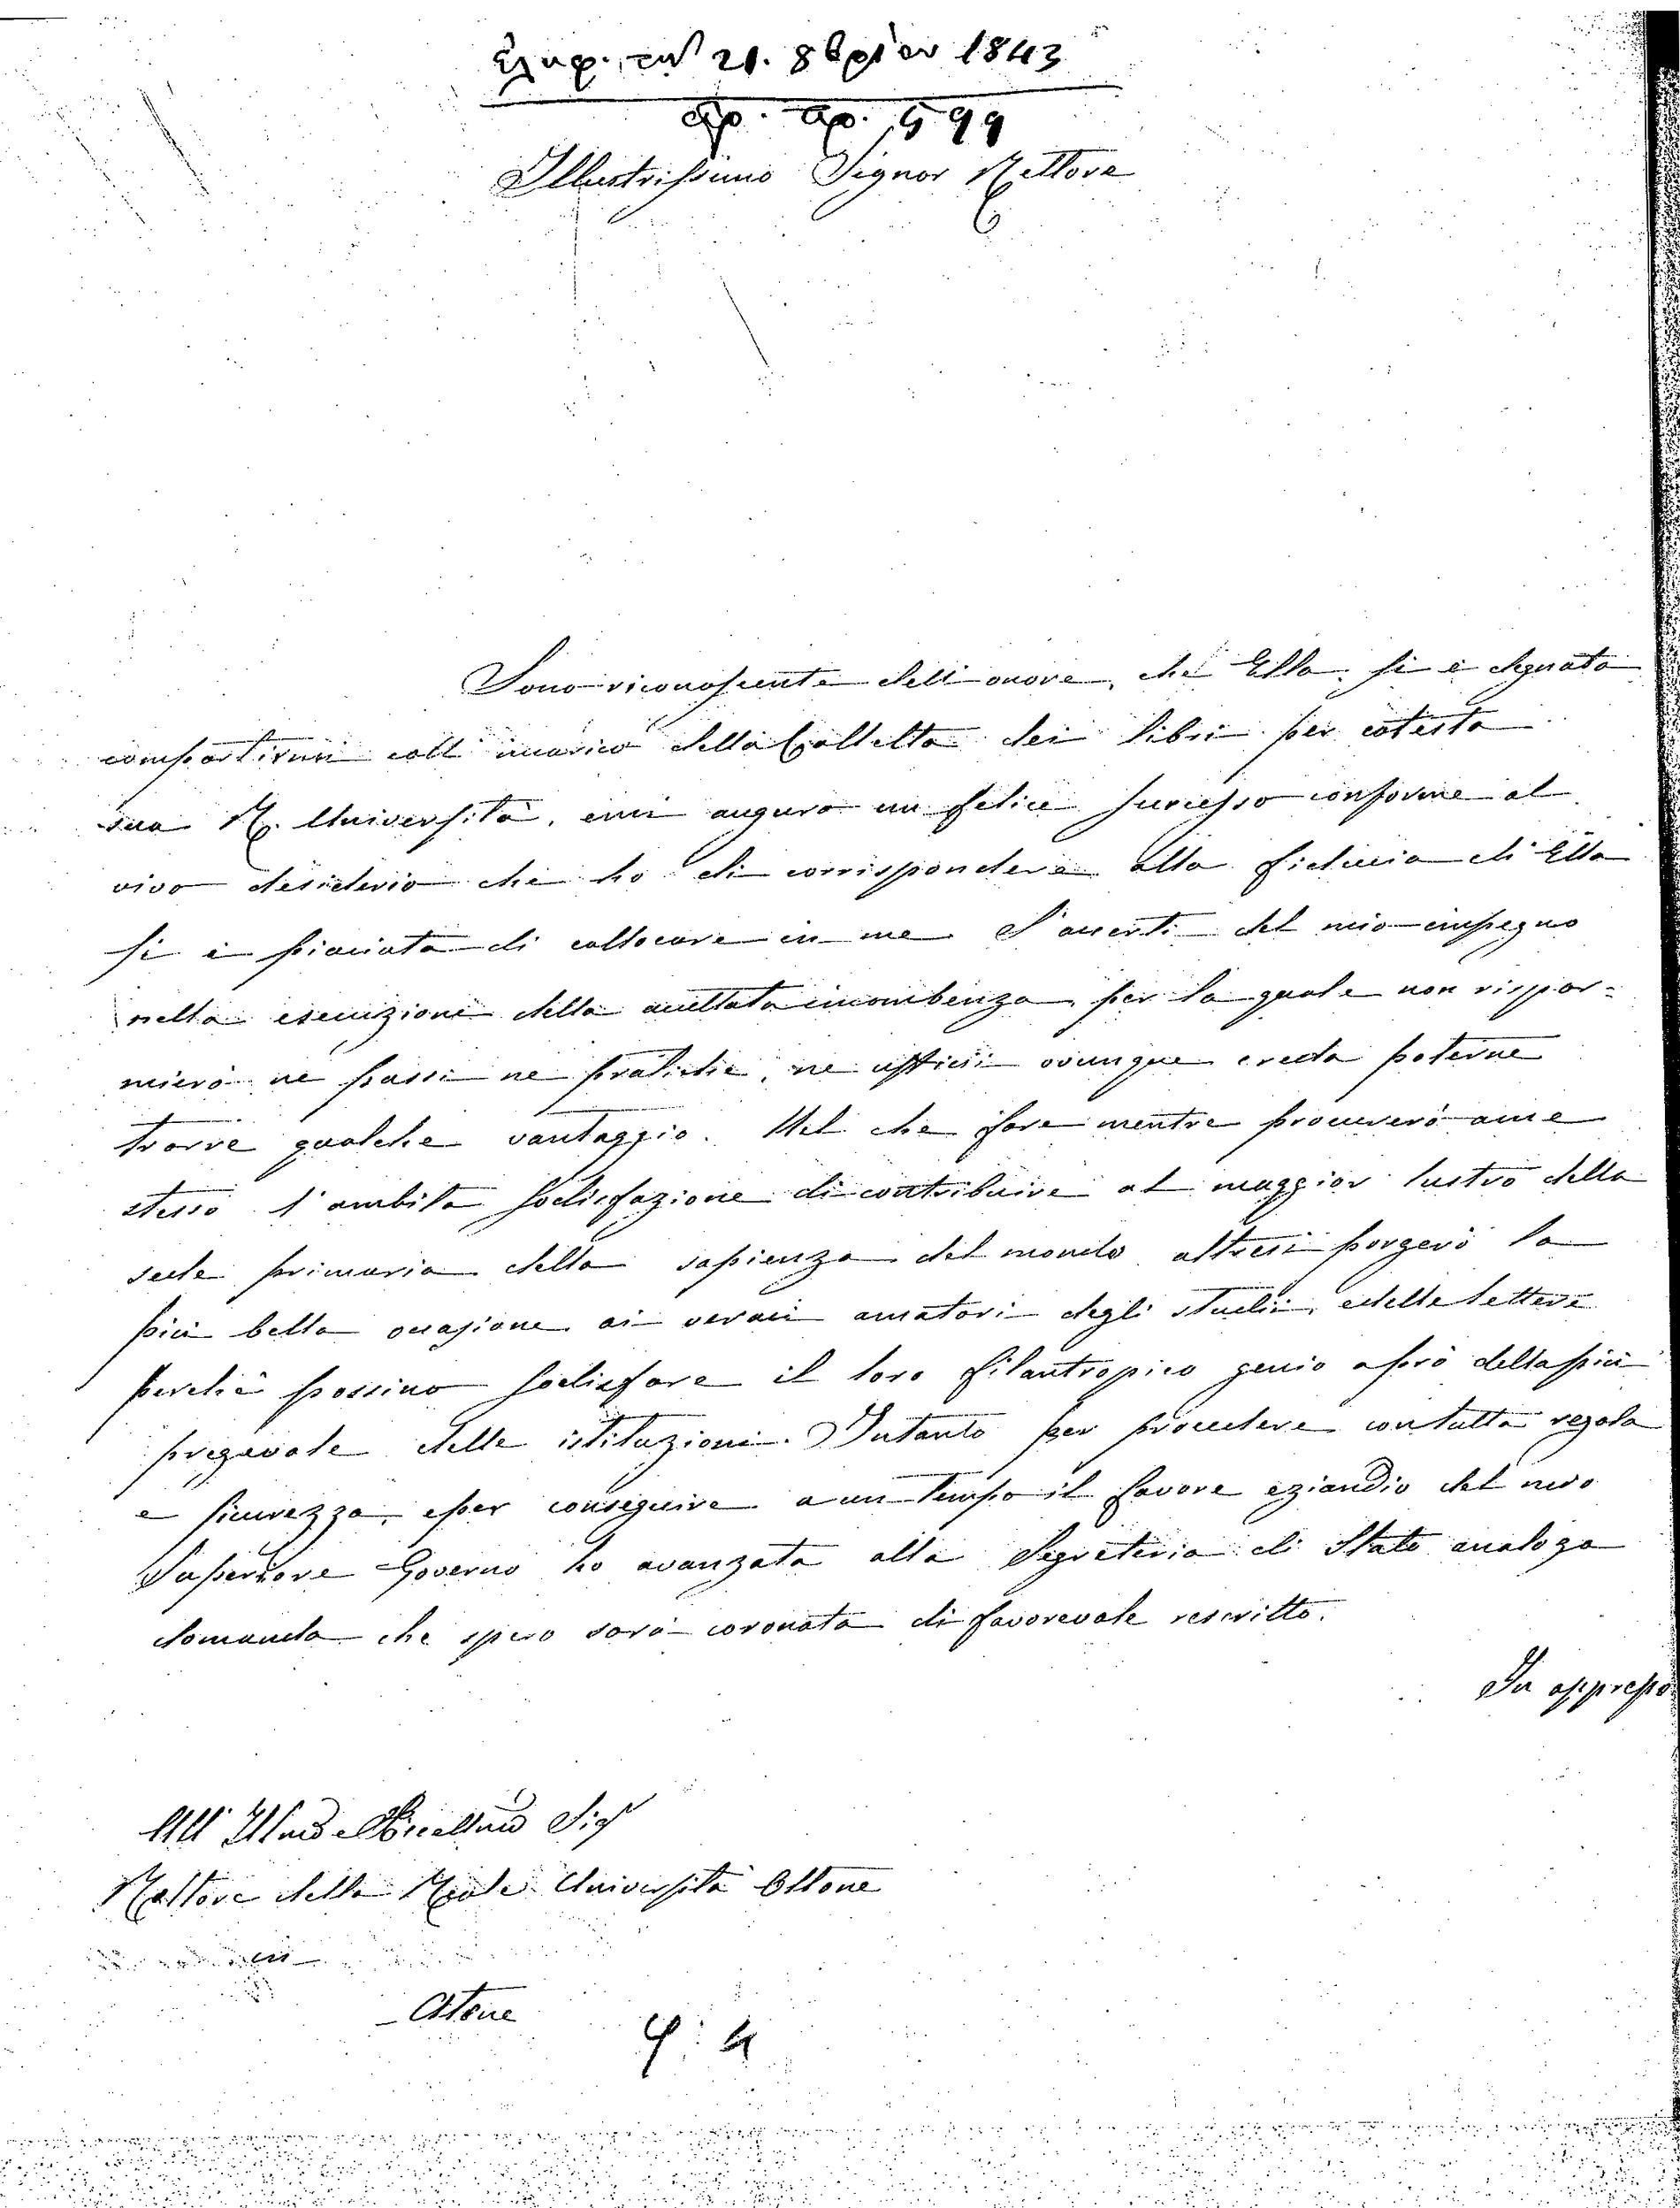 21. 8βρίου 1843
αρ. πρ. 599
Illustrissimo Signor Rettore
Sono riconoscente dell'onore, che Ella si è degnata
compartirmi coll'incarico della Colletta dei libri per cotesta
sua R. Università, e mi auguro un felice successo conforme al
vivo desiderio che ho di corrispondere alla fiducia ch'Ella
si è piaciuta di collocare in me. S'accerti del mio impegno
nella esecuzione della accettata incombenza, per la quale non rispar-
mierò ne passi ne pratiche, ne ufficii ovunque creda poterne
trarre qualche vantaggio. Nel che fare mentre procurerò a me
stesso l'ambita sodisfazione di contribuire al maggior lustro della
sede primaria della sapienza del mondo altresì porgerò la
più bella occasione ai veraci amatori degli studii, e delle lettere
perchè possino sodisfare il loro filantropico genio a prò della più
pregevole delle istituzioni. Intanto per procedere con tutta regola
e sicurezza, e per conseguire a un tempo il favore eziandio del mio
Superiore Governo ho avanzata alla Segreteria di Stato analoga
domanda che spero sarà coronata di favorevole rescritto.
In appresso
All' Illmo Sigr
Rettore della Reale Università Ottone
Atene